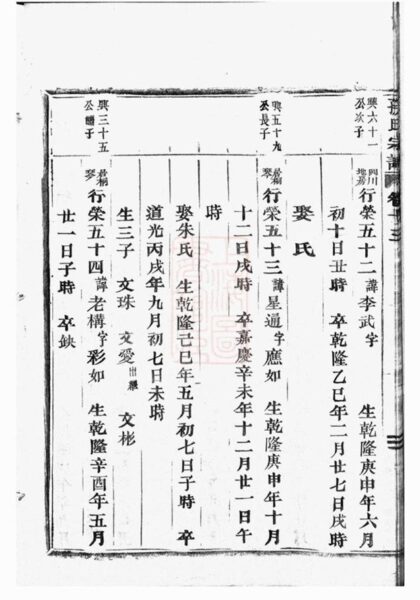 氏宗譜 卷十三
興六十一
公次子
行榮五十二諱李武字 生乾隆庚申年六月
初十日丑時 卒乾隆乙巳年二月廿七日戌時
娶氏
興五十九
公長子
行榮五十三諱星通字應如 生乾隆庚申年十月
十二日戌時 卒嘉慶辛未年十二月廿一日午
時
娶朱氏 生乾隆己巳年五月初七日子時 卒
道光丙戌年九月初七日未時
生三子 文珠 文愛出繼 文彬
興三十五
公子
行榮五十四諱老構字彩如 生乾隆辛酉年五月
廿一日子時 卒缺